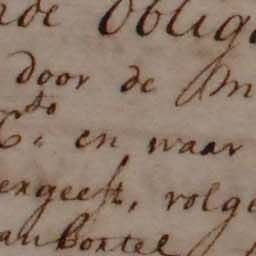 nde Oblig
door de m
C.to en waar
ergeeft, volge
van Boxtel